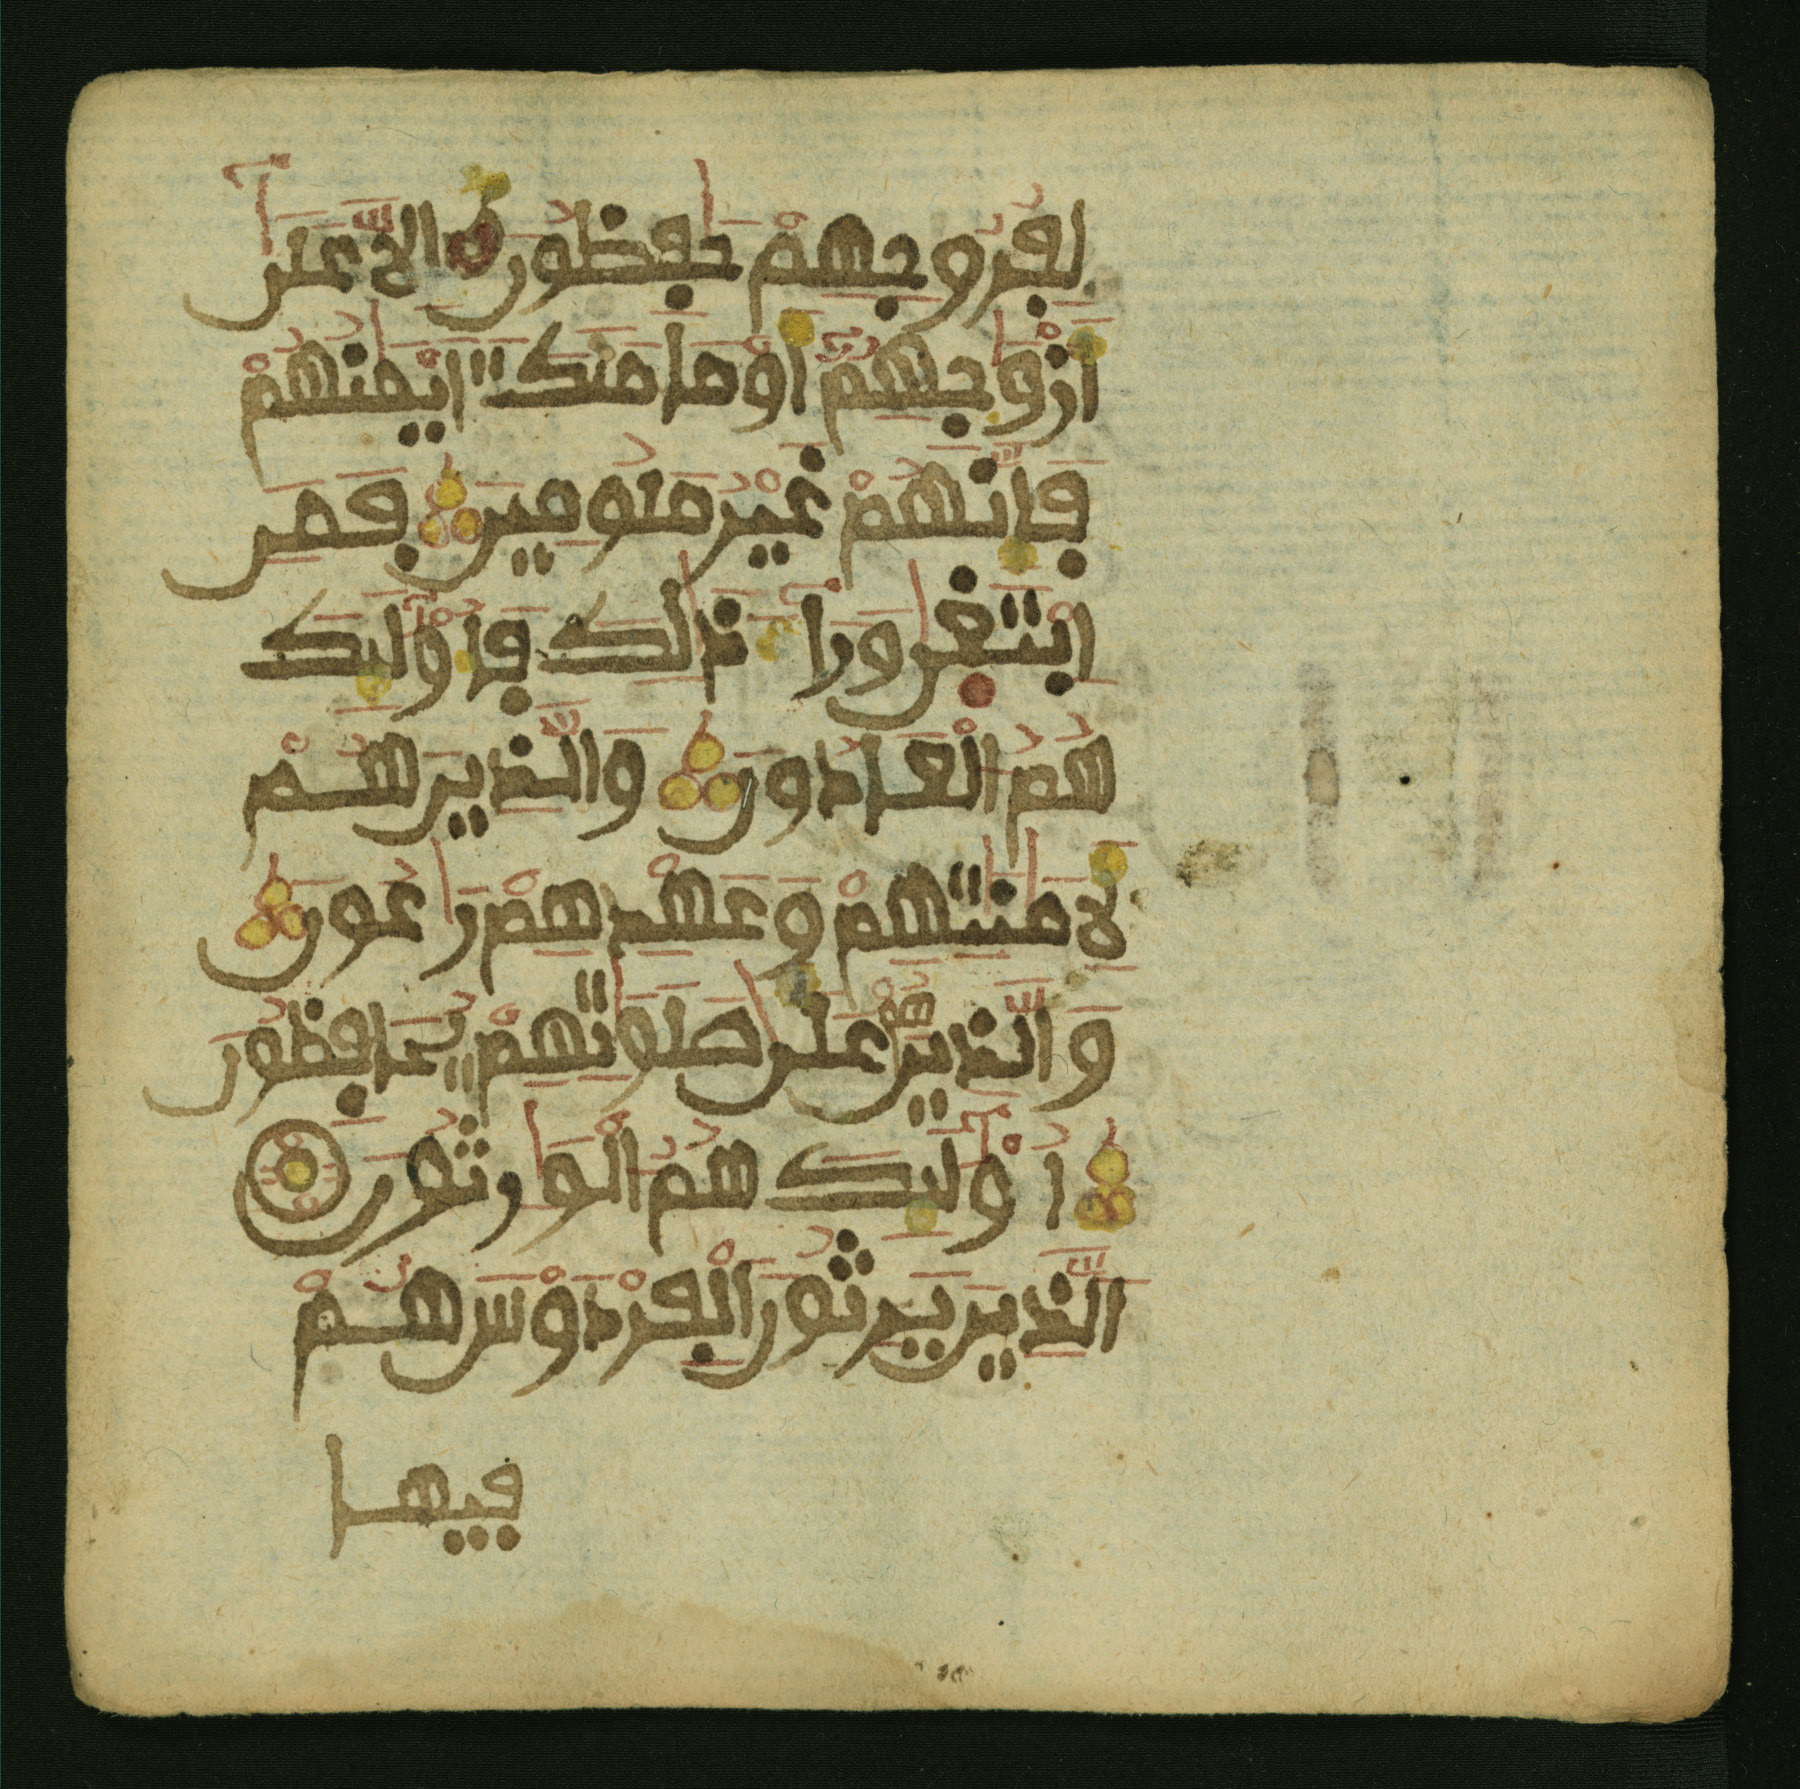 لِفُرُوجِهِمْ حَٰفِظُونَ إِلَّا عَلَىٰ
أَزْوَٰجِهِمُۥٓ أَوْ مَا مَلَكَتَ اَيْمَٰنُهُمْ
فَإِنَّهُمْ غَيْرُ مَلُومِينَ فَمَنِ
اِبْتَغَىٰ وَرَآءَ ذَٰلِكَ فَأُوْلَٰٓئِكَ
هُمُ الْعَادُونَ وَالَّذِينَ هُمْ
لِأَمَٰنَٰتِهِمْ وَعَهْدِهِمْ رَٰعُونَ
وَالَّذِينَ هُمْ عَلَىٰ صَلَوَٰتِهِمْ يُحَافِظُونَ
أُوْلَٰٓئِكَ هُمُ الْوَٰرِثُونَ
الَّذِينَ يَرِثُونَ الْفِرْدَوْسَ هُمْ
فيها